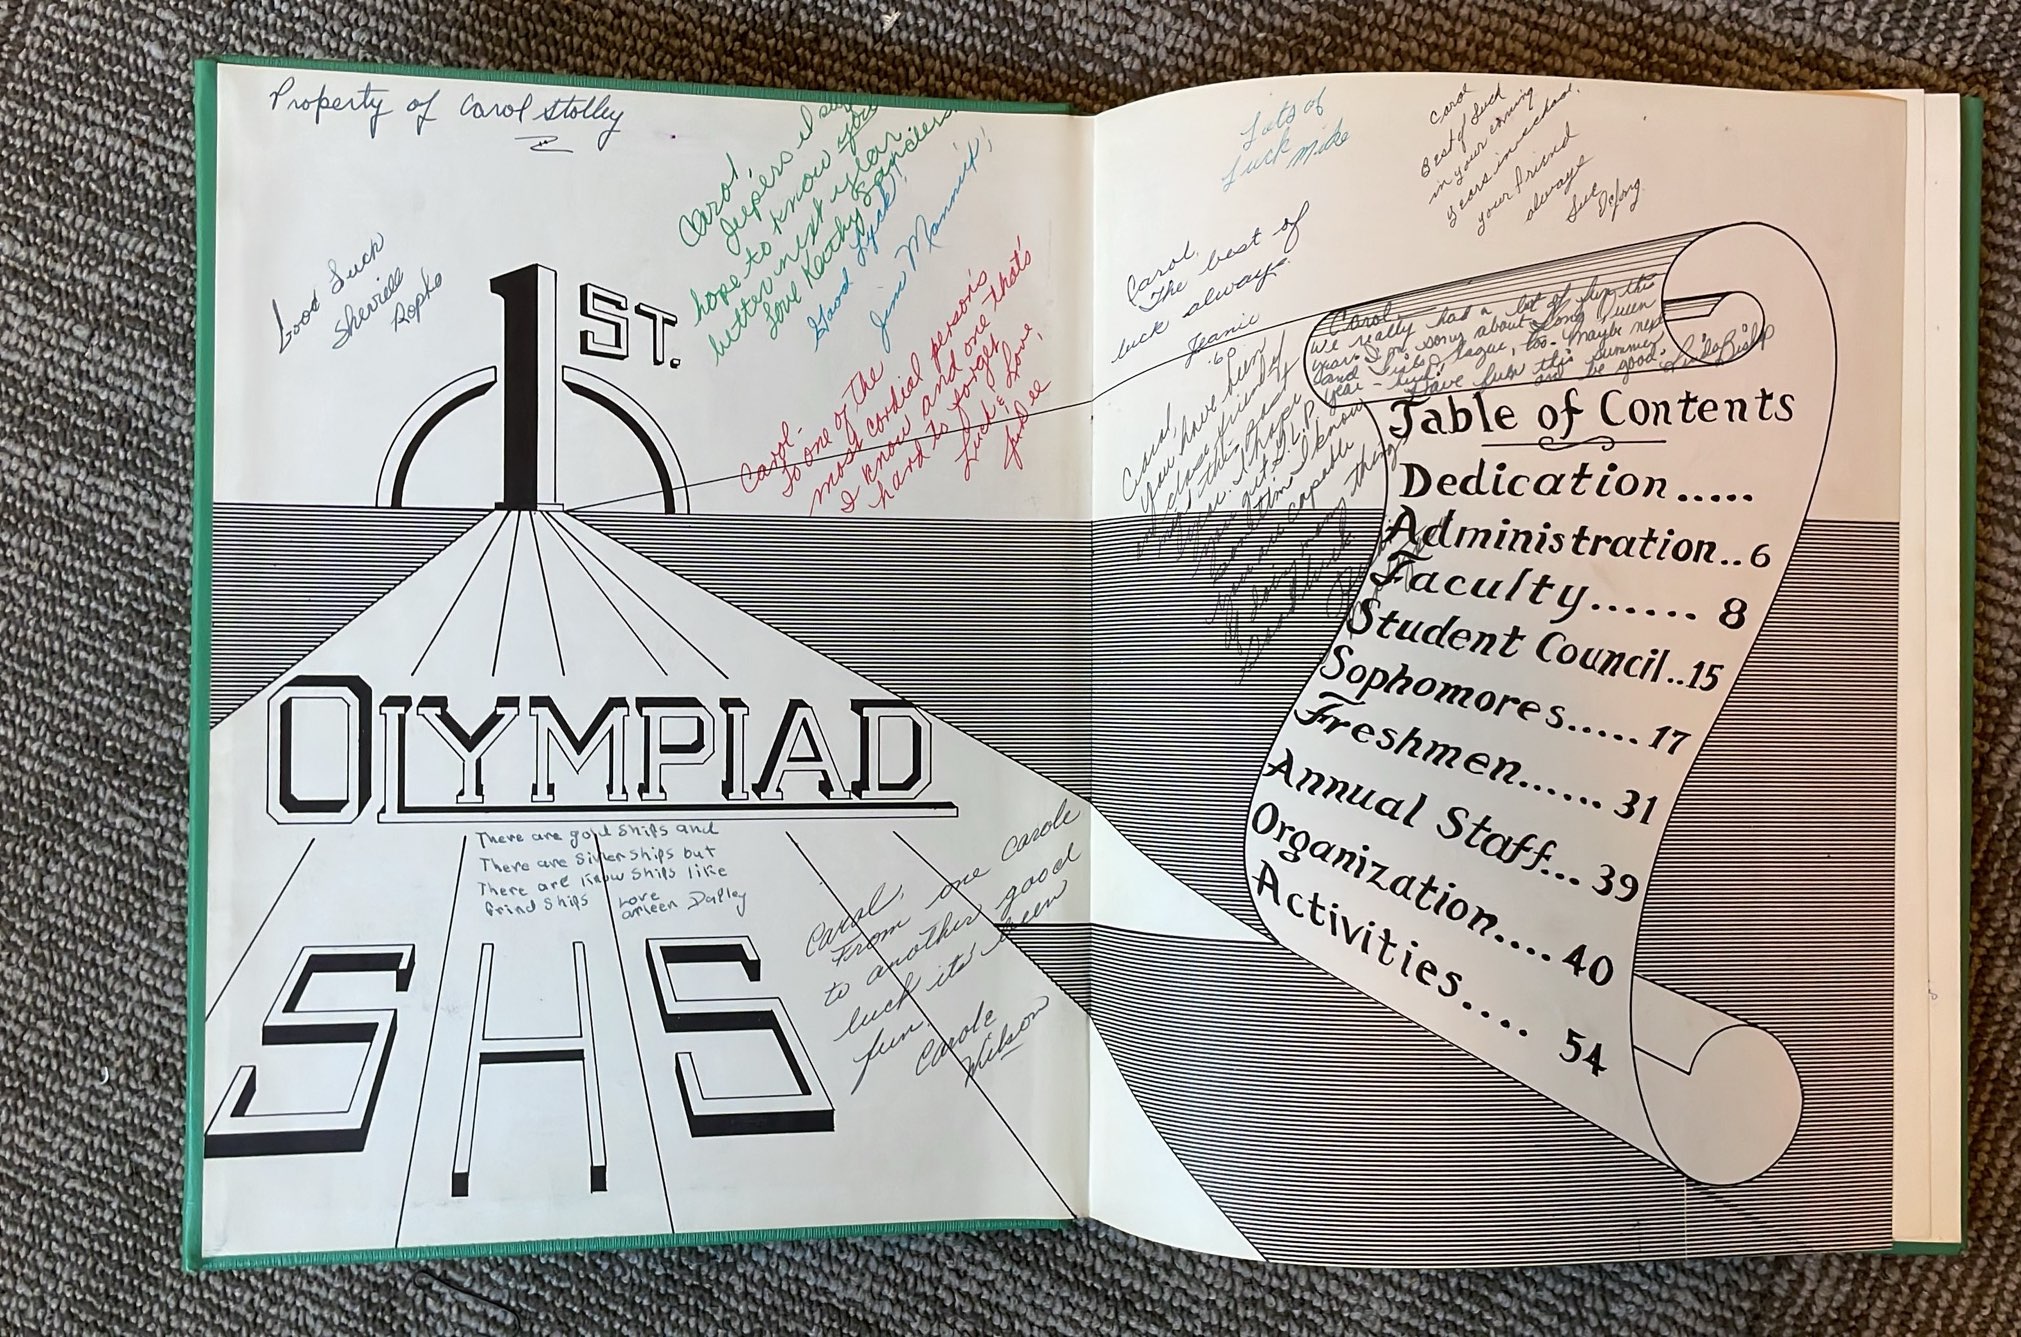 Property of Carol Stolley
Carol,
Jeepers I sure
hope to know you
better next year
Love Kathy Sanders
Good Luck!
Jim Mannix!
Good Luck
Sherrielle
Ropke
1ST.
Carol-
To one of the
most cordial person's
I know and one that's
hard to forget
Luck & Love,
OLYMPIAD
There are gold Ships and
There are Silver Ships but
There are know Ships like
frind Ships Love
arleen
SHS
Carol,
From one Carole
to another good
luck its been
fun.
Carole
Wilson
Lots of
Luck Mike
Carol
Best of Luck
in your coming
years in school.
your friend
always
Sue
Carol,
The best of
luck always.
Jeanie
'60
Carol
We really had a lot of fun this
year. I'm sorry about
and
year - huh! Have fun this summer
and be good. Linda Bishop
Carol,
You have been
a close friend of
mine this
year. I hope
you get
I know
you are capable
of doing many things
Good luck
Table of Contents
Dedication.....
Administration..6
Faculty...... 8
Student Council..15
Sophomores..... 17
Freshmen...... 31
Annual Staff... 39
Organization.... 40
Activities.... 54